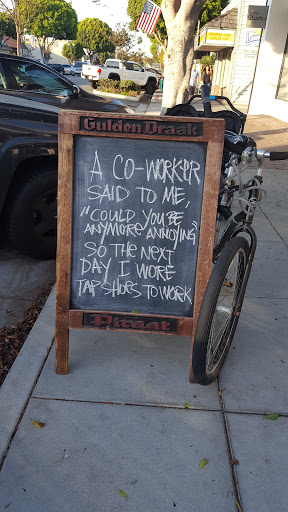 Gulden Draak
A CO-WORKER
SAID TO ME,
"COULD YOU BE
ANYMORE ANNOYING"
SO THE NEXT
DAY I WORE
TAP SHOES TO WORK
Piraat